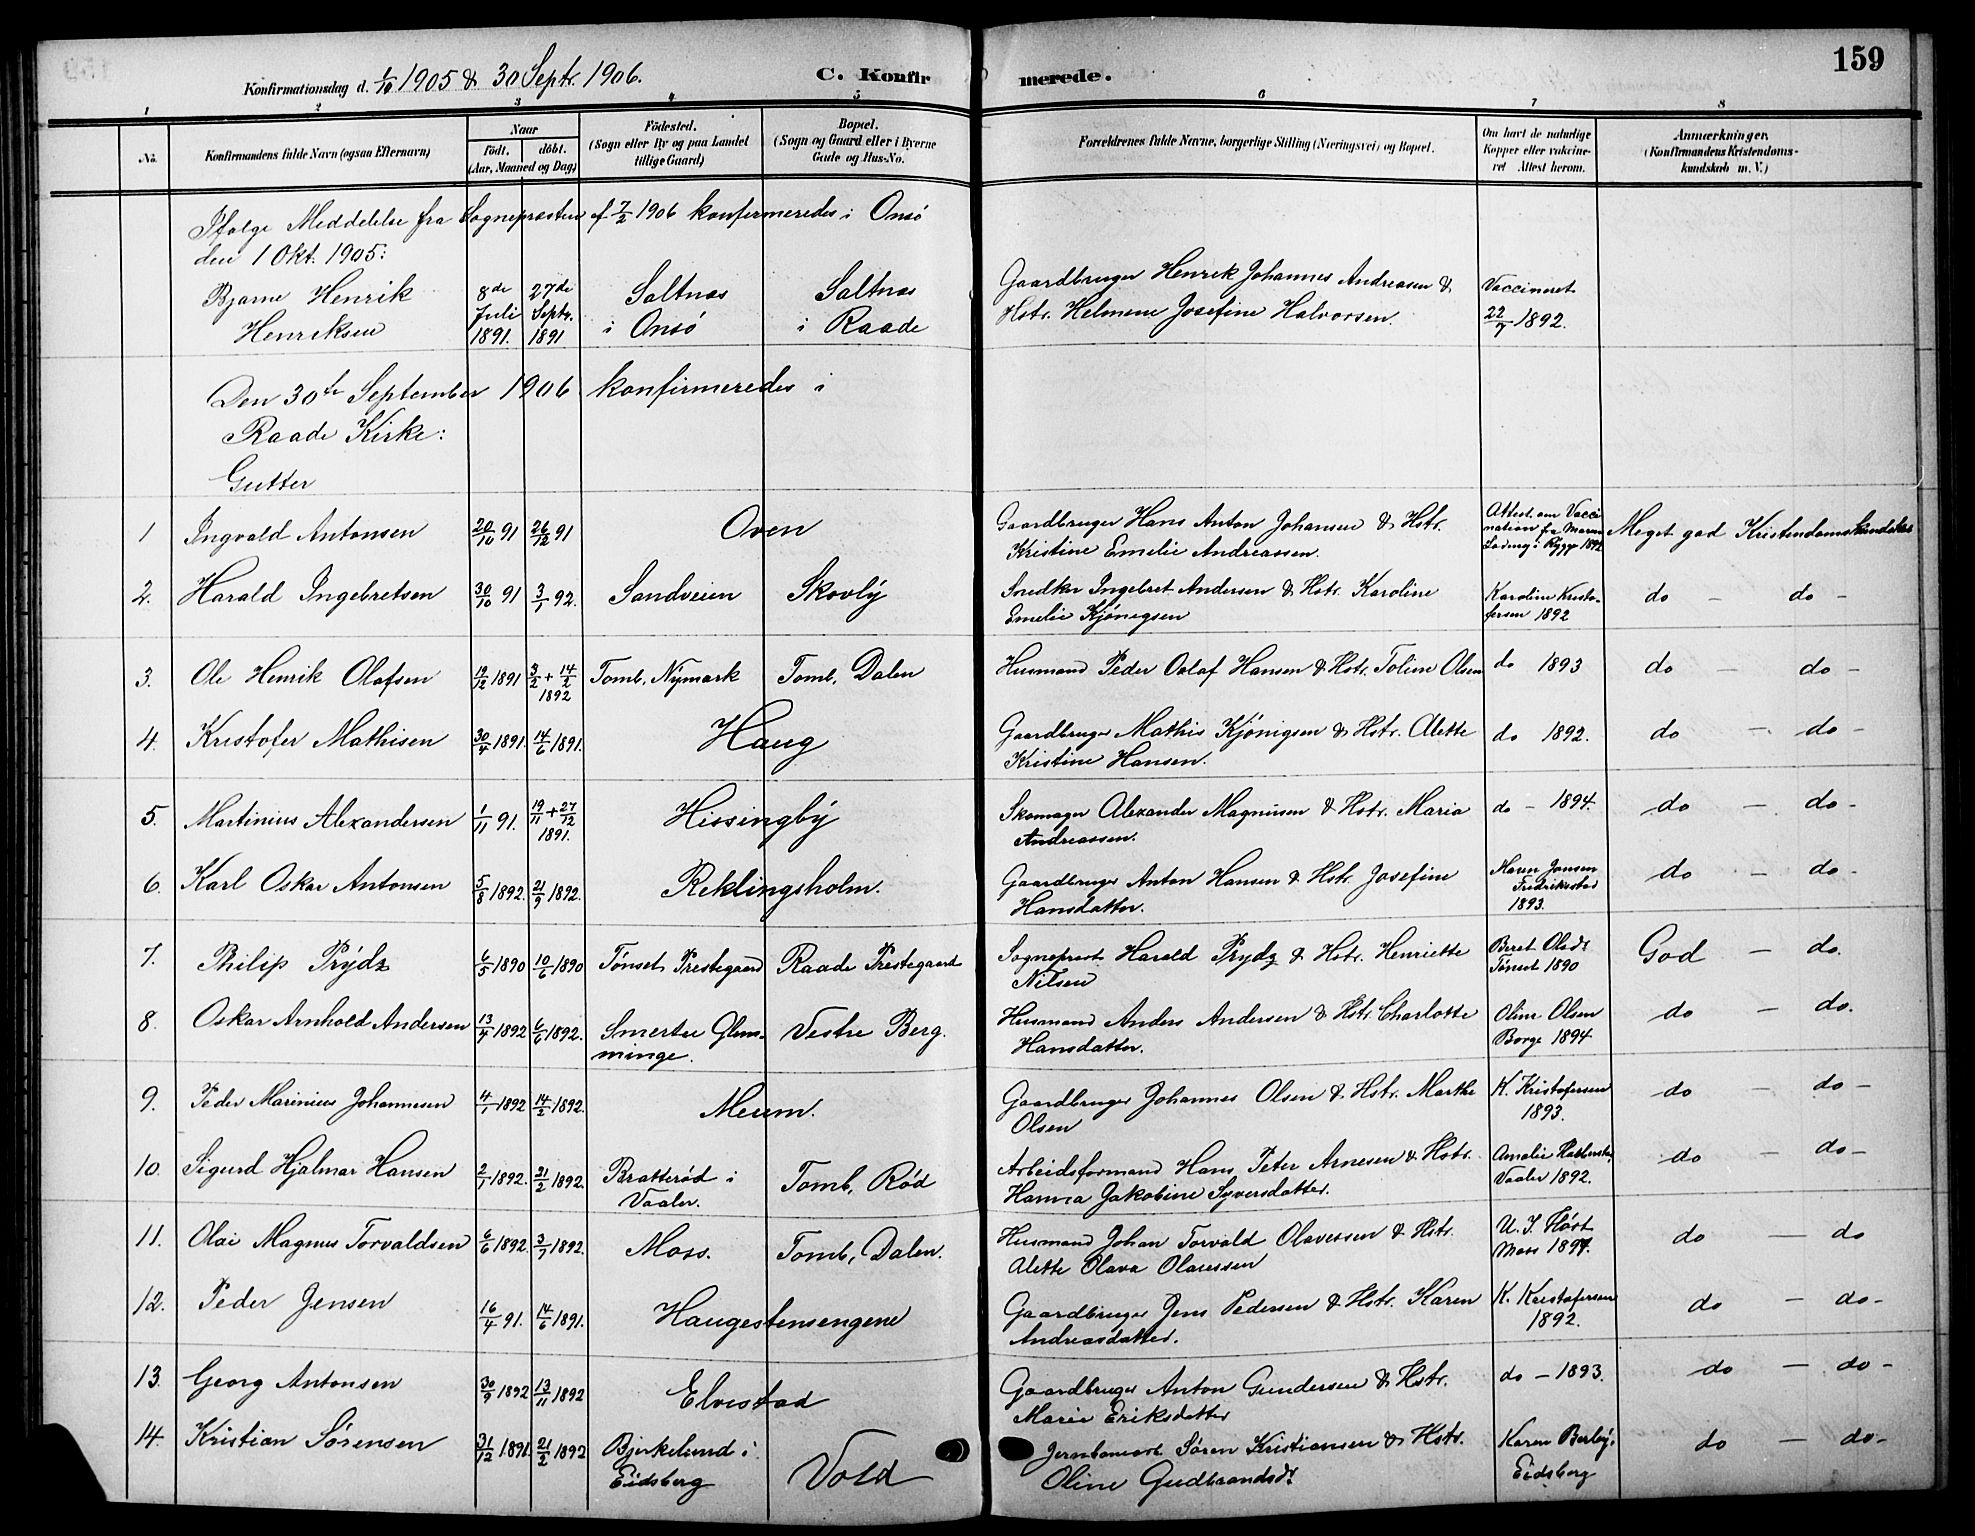 Konfirmationsdag d. 1/10 1905 & 30 Septr. 1906.
C. Konfirmerede.
159
1 2 3 4 5 6 7 8
No.
Konfirmandens fulde Navn (ogsaa Efternavn)
Naar
födt. döbt.
(Aar, Maaned og Dag)
Födested.
(Sogn eller By og paa Landet
tillige Gaard)
Bopæl.
(Sogn og Gaard eller i Byerne
Gade og Hus-No.
Forældrenes fulde Navne, borgerlige Stilling (Næringsvei) og Bopæl.
Om havt de naturlige
Kopper eller vakcine-
ret Attest herom.
Anmærkninger.
(Konfirmandens Kristendoms-
kundskab m. V.)
Ifølge Meddelelse fra Sognepræsten af 7/2 1906 konfirmeredes i Onsö
den 1 Okt. 1905:
Bjarne Henrik Henriksen 8de Juli 1891. 27de Septr. 1891 Saltnes i Onsö Saltnes i Raade Gaardbruger Henrik Johannes Andreasen & Hstr. Helmine Josefine Halvorsen. Vaccineret 22/7 1892.
Den 30te September 1906 konfirmeredes i
Raade Kirke:
Gutter
1 Ingvald Antonsen 20/10 91 26/12 91 Oven Gaardbruger Hans Anton Johansen & Hstr. Kristine Emelie Andreassen. Attest om Vaccination fra Maren Ladeng i Rygge 1892 Meget god Kristendomskundskab
2. Harald Ingebretsen 30/10 91 3/1 92. Sandveien Skovly Snedker Ingebret Andersen & Hstr. Karoline Emelie Kjönigsen Karoline Kristofersen 1892 do - do -
3. Ole Henrik Olafsen 12/12 1891 3/2 + 14/2 1892 Tomb, Nymark Tomb, Dalen Husmand Peder Oolaf Hansen & Hstr. Toline Olsen do 1893 do - do -
4. Kristofer Mathisen 30/4 1891. 14/6 1891. Haug Gaardbruger Mathis Kjönigsen & Hstr. Alette Kristine Hansen. do 1892. do - do -
5. Martinius Alexandersen 1/11 91. 19/11 + 27/12 1891. Hissingby Skomager Alexander Magnusen & Hstr. Maria Andreassen. do - 1894. do - do -
6. Karl Oskar Antonsen 5/8 1892. 21/9 1892. Reklingsholm. Gaardbruger Anton Hansen & Hstr. Josefine Hansdatter. Maren Jonsen Fredrikstad 1893. do - do -
7. Philip Prydz 6/5 1890 10/6 1890 Tönset Prestegaard Raade Prestegaard Sogneprest Harald Prydz & Hstr. Henriette Nilsen Beret Olsdt Tönset 1890 God - do.
8. Oskar Arnhold Andersen 13/4 1892 6/6 1892. Smertu Glemminge. Vestre Berg. Husmand Anders Andersen & Hstr. Charlotte Hansdatter. Oline Olsen Borge 1894 do - do.
9. Peder Marinius Johannesen 4/1 1892 14/2 1892. Meum. Gaardbruger Johannes Olsen & Hstr. Marthe Olsen K. Kristofersen 1893. do - do -
10. Sigurd Hjalmar Hansen 2/1 1892. 21/2 1892. Bratteröd i Vaaler. Tomb, Röd Arbeidsformand Hans Peter Arnesen & Hstr. Hanna Jakobine Syversdatter. Amalie Vaaler 1892. do - do -
11. Olai Magnus Torvaldsen 6/6 1892. 3/7 1892. Moss. Tomb, Dalen. Husmand Johan Torvald Olavessen & Hstr. Alette Olava Olavessen U. I. Moss 1894. do - do
12. Peder Jensen 16/4 91. 14/6 1891. Haugestensengene Gaardbruger Jens Pedersen & Hstr. Karen Andreasdatter. K. Kristofersen 1892. do - do -
13. Georg Antonsen 30/9 1892 13/11 1892 Elvestad Gaardbruger Anton Gundersen & Hstr. Marie Eriksdatter do - 1893. do - do -
14. Kristian Sörensen 31/12 1891. 21/2 1892 Bjerkelund i Eidsberg Vold Sören Kristiansen & Hstr. Oline Gudbrandsdt Karen Berby i Eidsberg do - do -